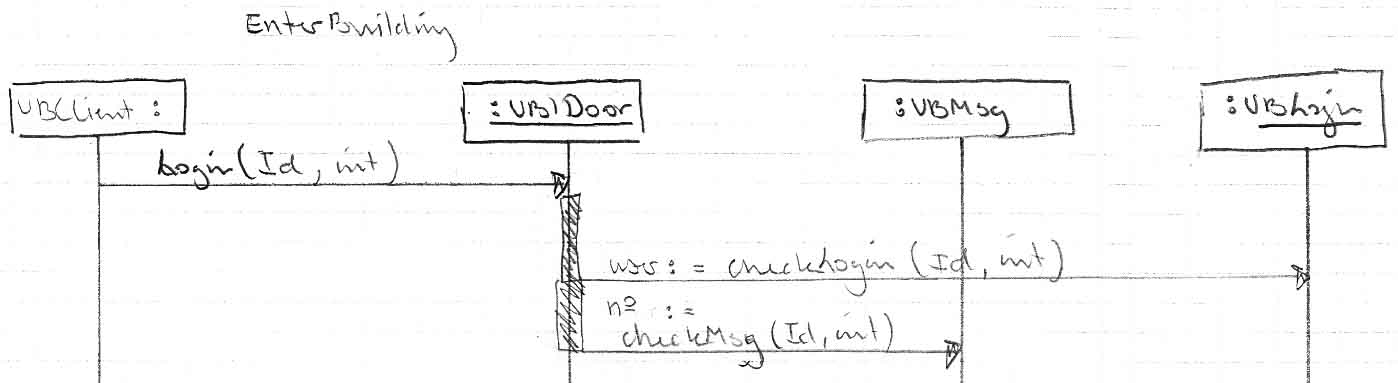 EnterBuilding
VBClient :
:VB1Door
:VBMsg
:VBLogin
Login(Id, int)
user := checkLogin(Id, int)
nº :=
checkMsg(Id, int)